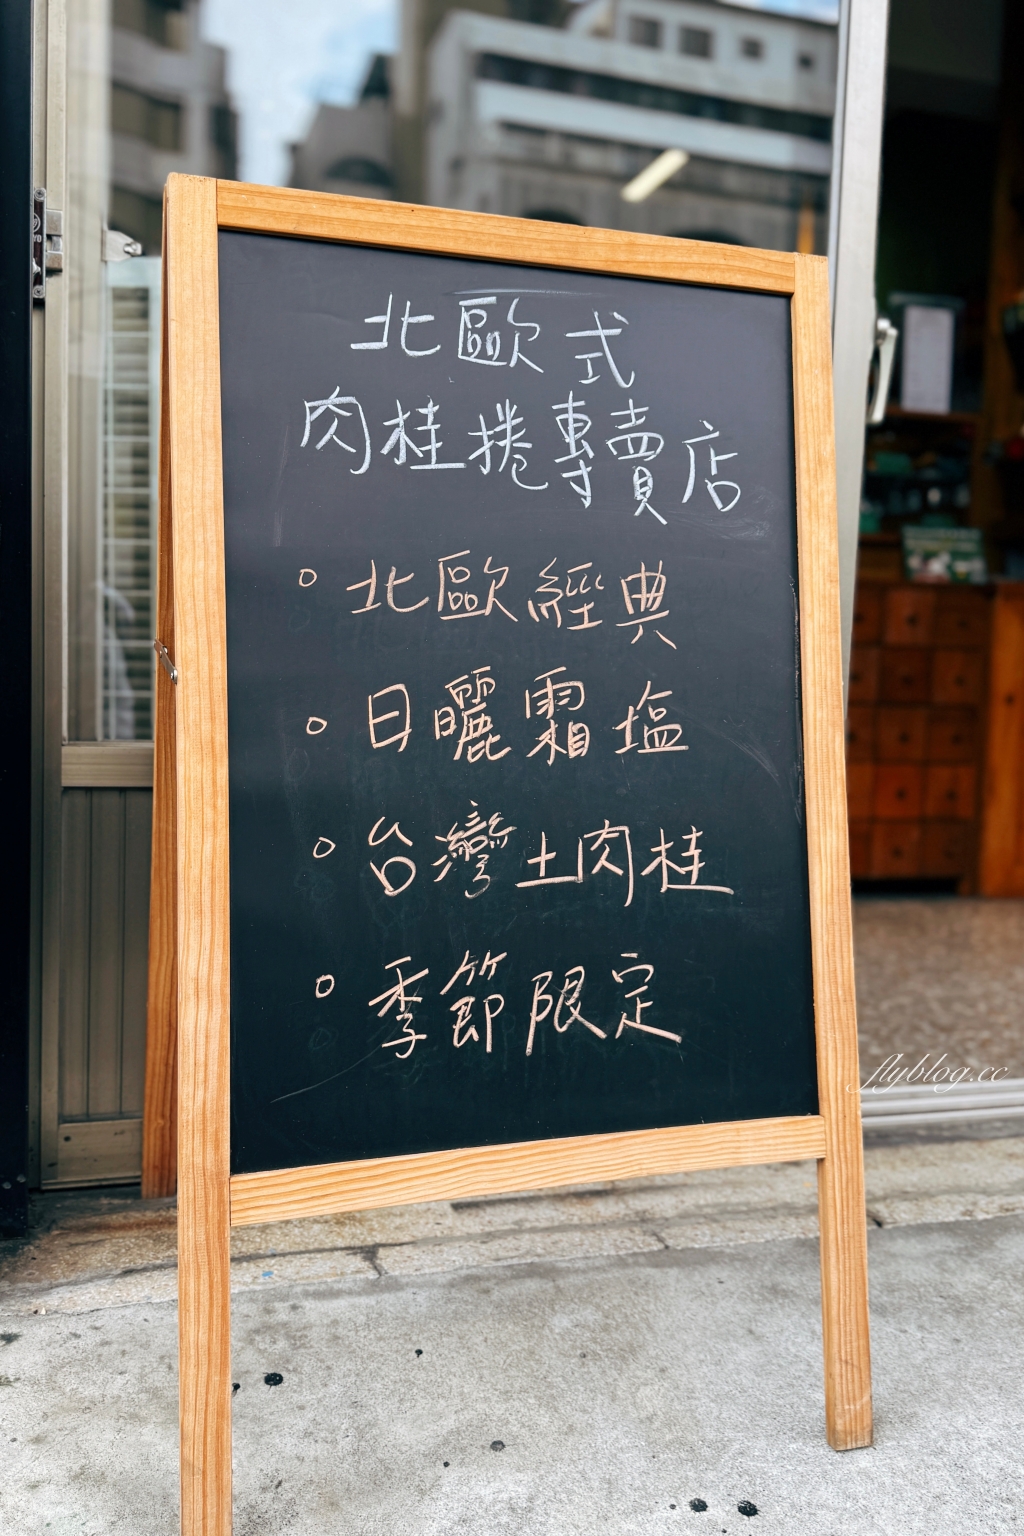 北歐式
肉桂捲專賣店
。北歐經典
。日曬霜塩
。台灣土肉桂
。季節限定
flyblog.cc